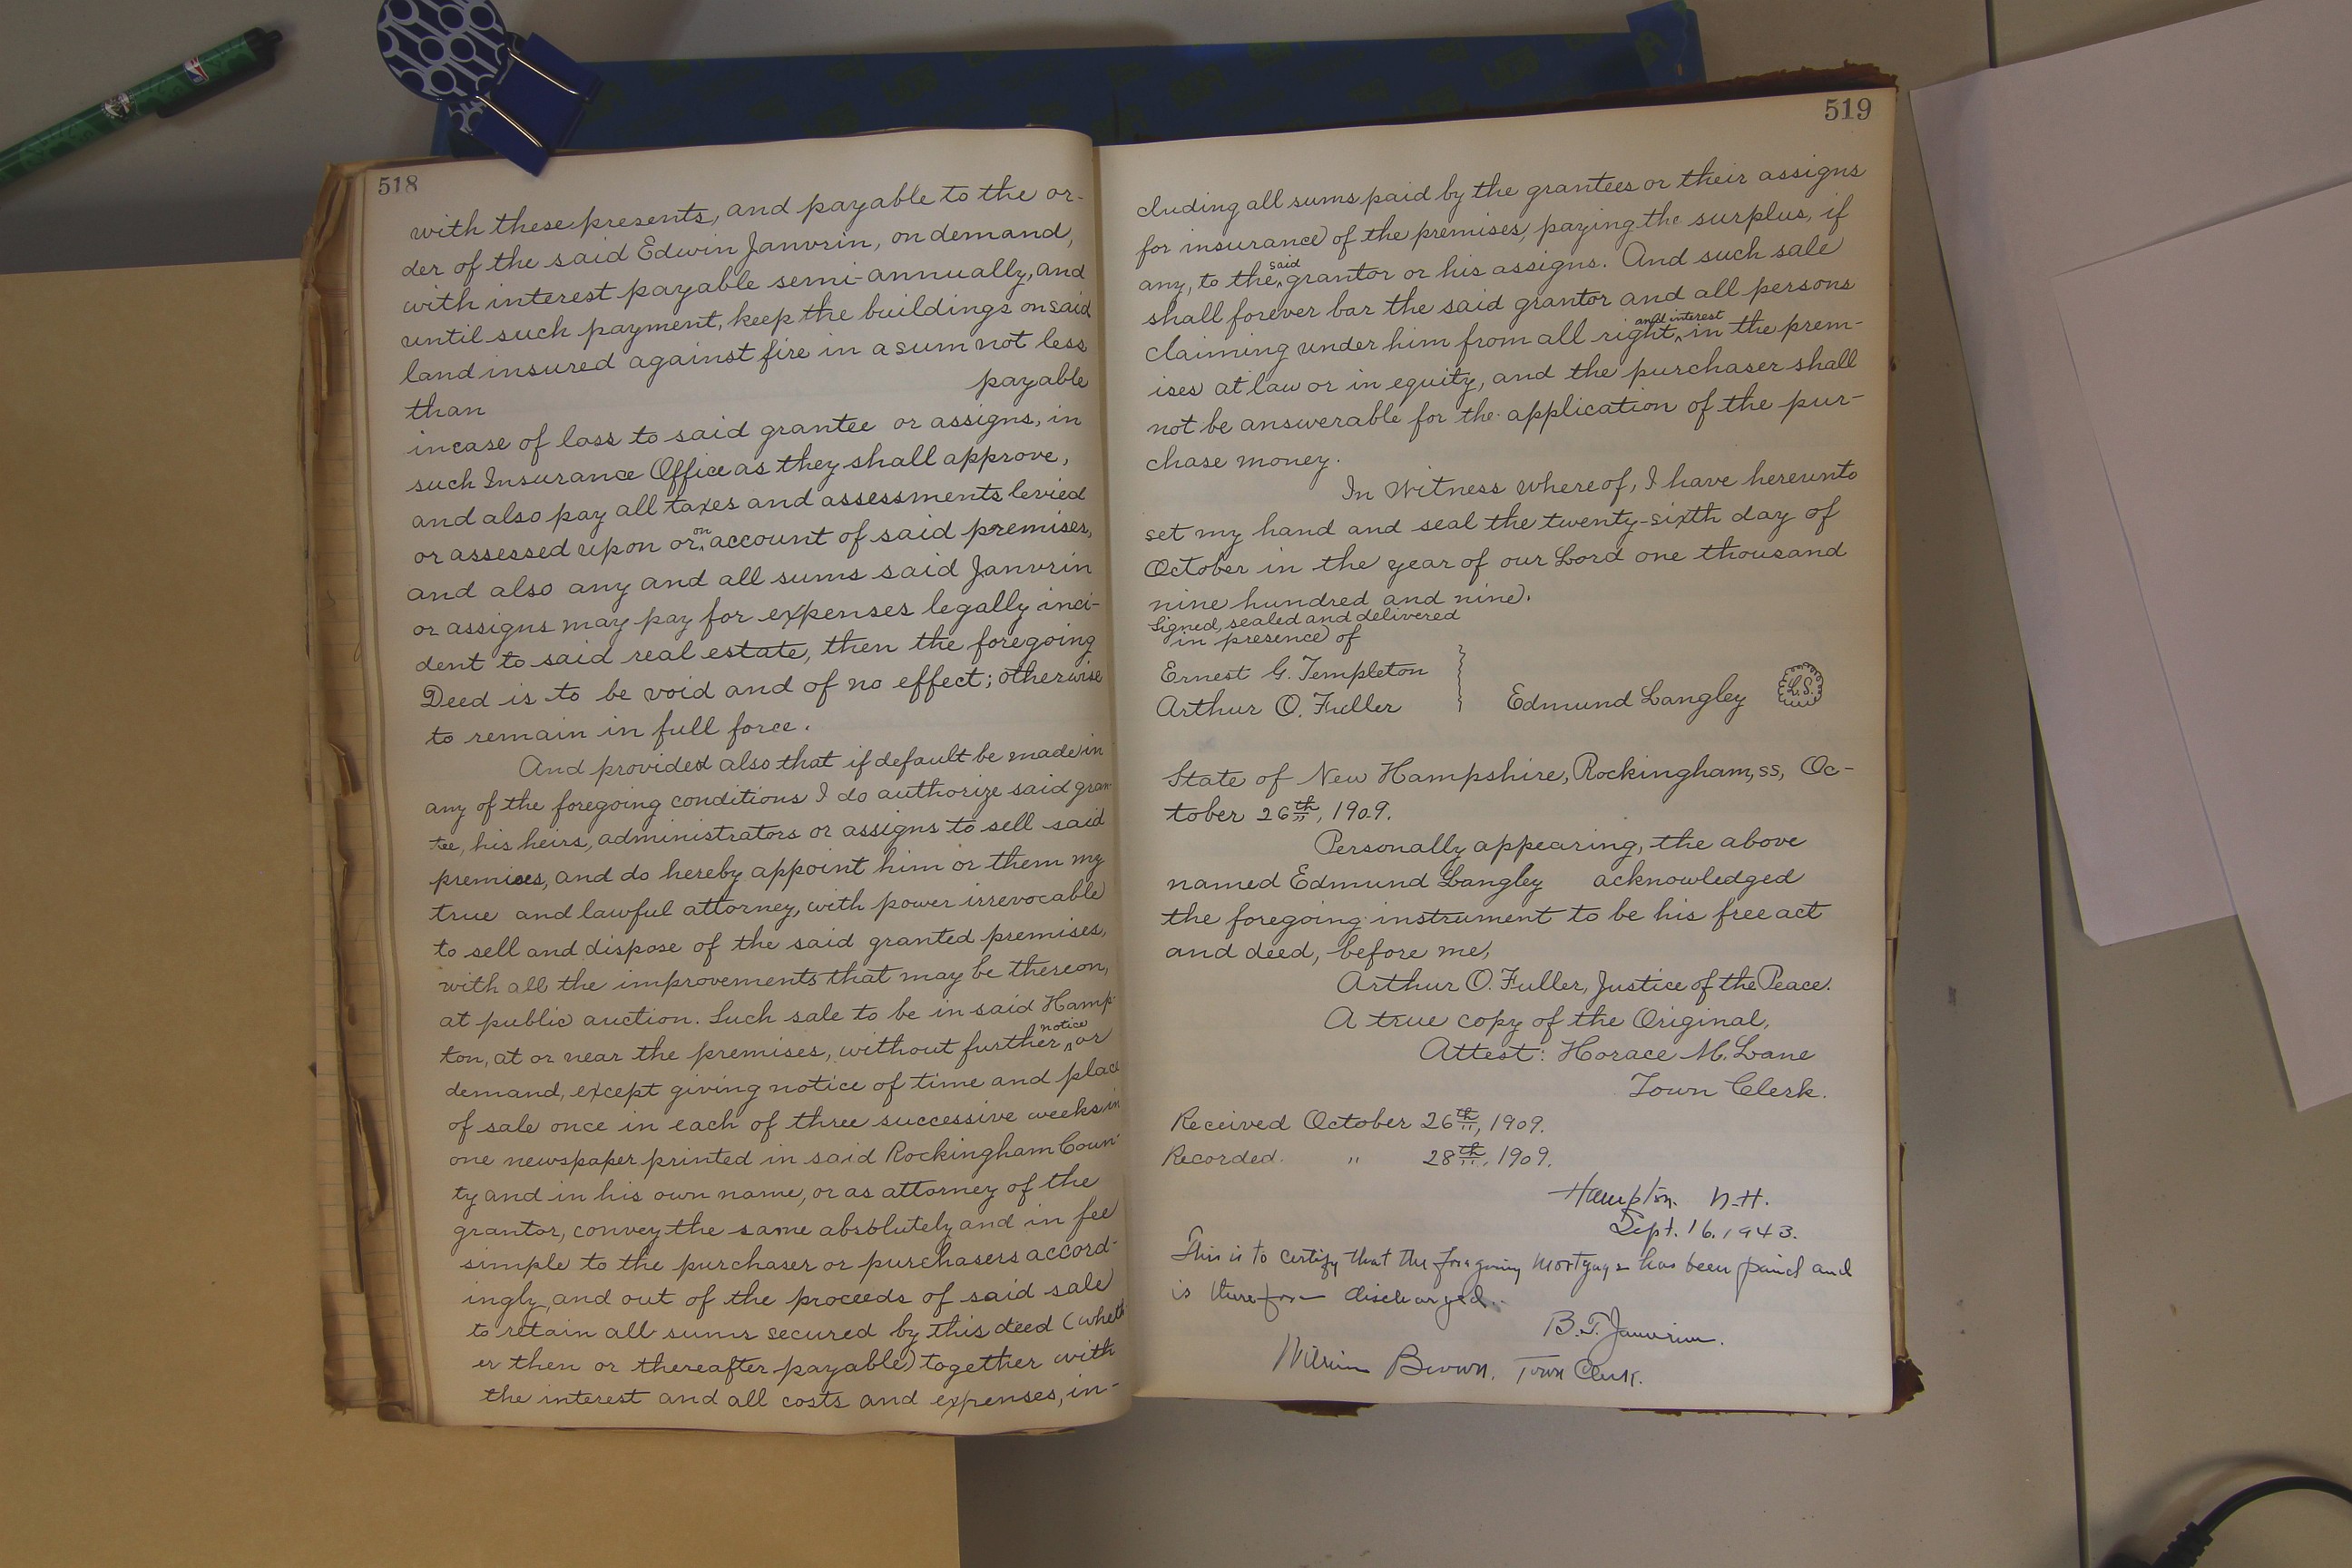 518
with these presents, and payable to the or-
der of the said Edwin Janvrin, on demand,
with interest payable semi-annually, and
until such payment, keep the buildings on said
land insured against fire in a sum not less
than payable
in case of loss to said grantee or assigns, in
such Insurance Office as they shall approve,
and also pay all taxes and assessments levied
or assessed upon or on account of said premises,
and also any and all sums said Janvrin
or assigns may pay for expenses legally inci-
dent to said real estate, then the foregoing
Deed is to be void and of no effect; otherwise
to remain in full force.
And provided also that if default be made in
any of the foregoing conditions I do authorize said gran-
tee, his heirs, administrators or assigns to sell said
premises, and do hereby appoint him or them my
true and lawful attorney, with power irrevocable
to sell and dispose of the said granted premises,
with all the improvements that may be thereon,
at public auction. Such sale to be in said Hamp-
ton, at or near the premises, without further notice or
demand, except giving notice of time and place
of sale once in each of three successive weeks in
one newspaper printed in said Rockingham Coun-
ty and in his own name, or as attorney of the
grantor, convey the same absolutely and in fee
simple to the purchaser or purchasers accord-
ingly, and out of the proceeds of said sale
to retain all sums secured by this deed (wheth
er then or thereafter payable) together with
the interest and all costs and expenses, in-
519
cluding all sums paid by the grantees or their assigns
for insurance of the premises, paying the surplus, if
any, to the said grantor or his assigns. And such sale
shall forever bar the said grantor and all persons
claiming under him from all right and interest in the prem-
ises at law or in equity, and the purchaser shall
not be answerable for the application of the pur-
chase money.
In Witness whereof, I have hereunto
set my hand and seal the twenty-sixth day of
October in the year of our Lord one thousand
nine hundred and nine.
Signed, sealed and delivered
in presence of
Ernest G. Templeton
Arthur O. Fuller Edmund Langley L.S.
State of New Hampshire, Rockingham, ss, Oc-
tober 26th, 1909.
Personally appearing, the above
named Edmund Langley acknowledged
the foregoing instrument to be his free act
and deed, before me,
Arthur O. Fuller, Justice of the Peace.
A true copy of the Original,
Attest: Horace M. Lane
Town Clerk.
Received October 26th, 1909.
Recorded. " 28th, 1909.
Hampton. N.H.
Sept. 16. 1943.
This is to certify that the foregoing mortgage has been paid and
is therefore discharged.
B.T. Janvrin.
William Brown, Town Clerk.